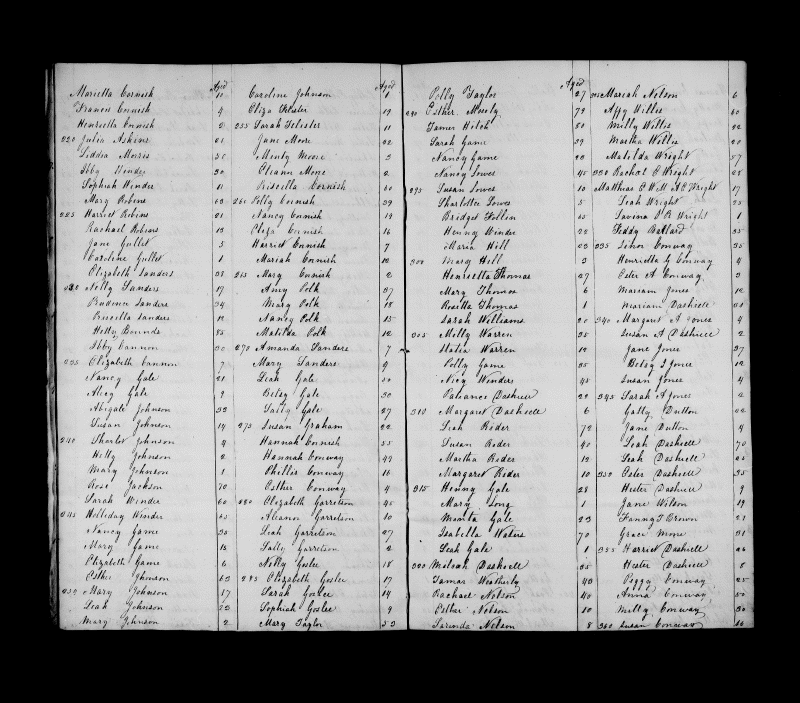 Aged
Marietta Cornish 10
Frances Cornish 4
Henrietta Cornish 2
220 Julia Askins 21
Liddia Morris 30
Ibby Winder 30
Sophiah Winder 11
Mary Robins 60
225 Harriet Robins 21
Rachael Robins 13
Jane Gullet 3
Caroline Gullet 1
Elizabeth Sanders 38
230 Nelly Sanders 17
Prudence Sanders 34
Priscilla Sanders 12
Hetty Bounds 35
Ibby Cannon 30
235 Elizabeth Cannon 7
Nancy Gale 21
Alicy Gale 2
Abigale Johnson 33
Susan Johnson 14
240 Sharlot Johnson 4
Hetty Johnson 2
Mary Johnson 1
Rose Jackson 70
Sarah Winder 60
245 Holliday Winder 65
Nancy Game 30
Mary Game 13
Elizabeth Game 6
Esther Johnson 63
250 Mary Johnson 17
Leah Johnson 23
Mary Johnson 2
Aged
Caroline Johnson 1
Eliza Felister 19
255 Sarah Felister
Jane Moore 22
Menty Moore 3
Eleann Moore 2
Priscilla Cornish 60
260 Polly Cornish 39
Nancy Cornish 19
Eliza Cornish 16
Harriet Cornish 7
Mariah Cornish 12
265 Mary Cornish 2
Amy Polk 37
Mary Polk 18
Nancy Polk 15
Matilda Polk 12
270 Amanda Sanders 7
Mary Sanders 9
Leah Gale 50
Betsy Gale 30
Sally Gale 27
275 Susan Graham 22
Hannah Cornish 55
Hannah Conway 49
Phillis Conway 16
Esther Conway 4
280 Elizabeth Garretson 45
Aleann Garretson 10
Leah Garretson 27
Sally Garretson 2
Nelly Goslee 18
285 Elizabeth Goslee 17
Sarah Goslee 14
Sophiah Goslee 9
Mary Taylor 53
Aged
Polly Taylor 27
290 Esther Mosely 79
Tamer Hitch 80
Sarah Game 39
Nancy Game
Nancy Lowes 45
295 Susan Lowes 10
Sharlotte Lowes 5
Bridget Follin 65
Henny Winder 22
Maria Hill 22
300 Mary Hill 3
Henrietta Thomas 27
Mary Thomas 6
Rosetta Thomas 1
Sarah Williams 20
305 Milly Warren 35
Statia Warren 12
Polly Game 35
Nicy Winders 45
Patiance Dashiell 22
310 Margaret Dashiell 6
Leah Rider 72
Susan Rider 40
Martha Rider 12
Margaret Rider 10
315 Henny Gale 28
Mary Long 1
Menta Gale 23
Isabella Waters 70
Leah Gale 1
320 Meloah Dashiell 35
Tamar Weatherly 40
Rachael Nelson 40
Esther Nelson 10
Sarinda Nelson 8
325 Mariah Nelson 6
Affy Willis 60
Milly Willis 22
Martha Willis 20
Matilda Wright 57
330 Rachel E Wright 25
Matthias C Will A C Wright 17
Leah Wright 25
Lavena P R Wright 1
Teddy Ballard 35
335 Sinor Conway 35
Henrietta G Conway 4
Ester A Conway 3
Mariam Jones 12
Mariam Dashiell 50
340 Margaret A Jones 4
Susan A Dashiell 2
Jane Jones 37
Betsy J Jones 12
Susan Jones 4
345 Sarah A Jones 2
Gatty Dutton 22
Jane Dutton 4
Leah Dashiell 70
Leah Dashiell 22
350 Ester Dashiell 35
Hester Dashiell 9
Jane Wilson 19
Fanny T Brown 21
Grace Moore 31
355 Harriet Dashiell 26
Hester Dashiell 8
Peggy Conway 25
Anna Conway 50
Milly Conway 30
360 Susan Conway